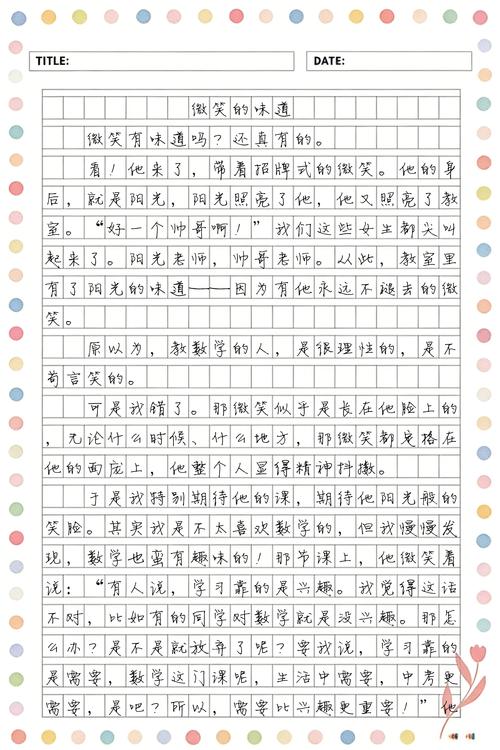 TITLE:
DATE:
微笑的味道
微笑有味道吗？还真有的。
看！他来了，带着招牌式的微笑。他的身
后，就是阳光，阳光照亮了他，他又照亮了教
室。“好一个帅哥啊！”我们这些女生都尖叫
起来了。阳光老师，帅哥老师。从此，教室里
有了阳光的味道——因为有他永远不褪去的微
笑。
原以为，教数学的人，是很理性的，是不
苟言笑的。
可是我错了。那微笑似乎是长在他脸上的
，无论什么时候、什么地方，那微笑都定格在
他的面庞上，他整个人显得精神抖擞。
于是我特别期待他的课，期待他阳光般的
笑脸。其实我是不太喜欢数学的，但我慢慢发
现，数学也蛮有趣味的！那节课上，他微笑着
说：“有人说，学习靠的是兴趣。我觉得这话
不对，比如有的同学对数学就是没兴趣。那怎
么办？是不是就放弃了呢？要我说，学习靠的
是需要，数学这门课呢，生活中需要，中考更
需要，是吧？所以，需要比兴趣更重要！”他